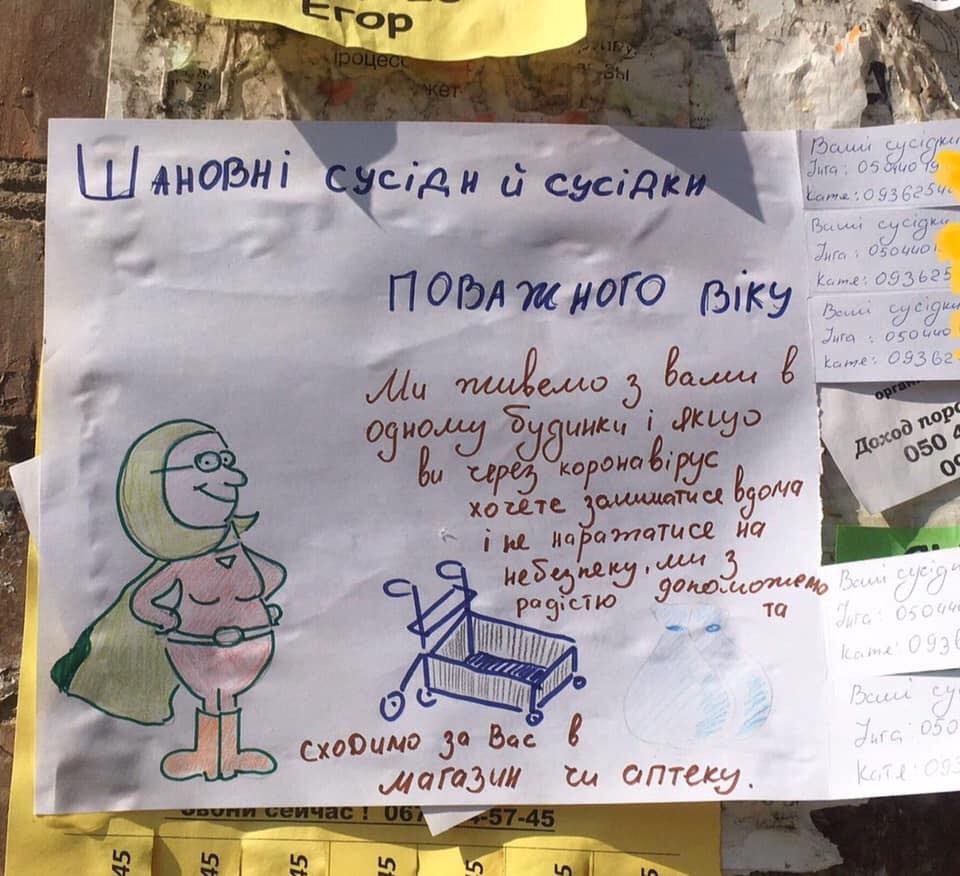 Егор
процесс
жет
Шановні сусіди й сусідки
поважного віку
Ми живемо з вами в
одному будинки і якщо
ви через коронавірус
хочете залишатися вдома
і не наражатися на
небезпеку, ми з
радістю допоможемо
та
сходимо за Вас в
магазин чи аптеку.
Ваші сусідки
Інга: 0504401
Катя: 0936254
Ваші сусідки
Інга: 050440
Катя: 093625
Ваші сусідки
Інга: 050440
Катя: 09362
орган
Доход поро
050 4
09
Ваші сусідк
Інга: 05044
Катя: 0936
Ваші су
Інга: 050
Катя: 093
Звони сейчас! 067 4-57-45
45 45 45 45 45 45